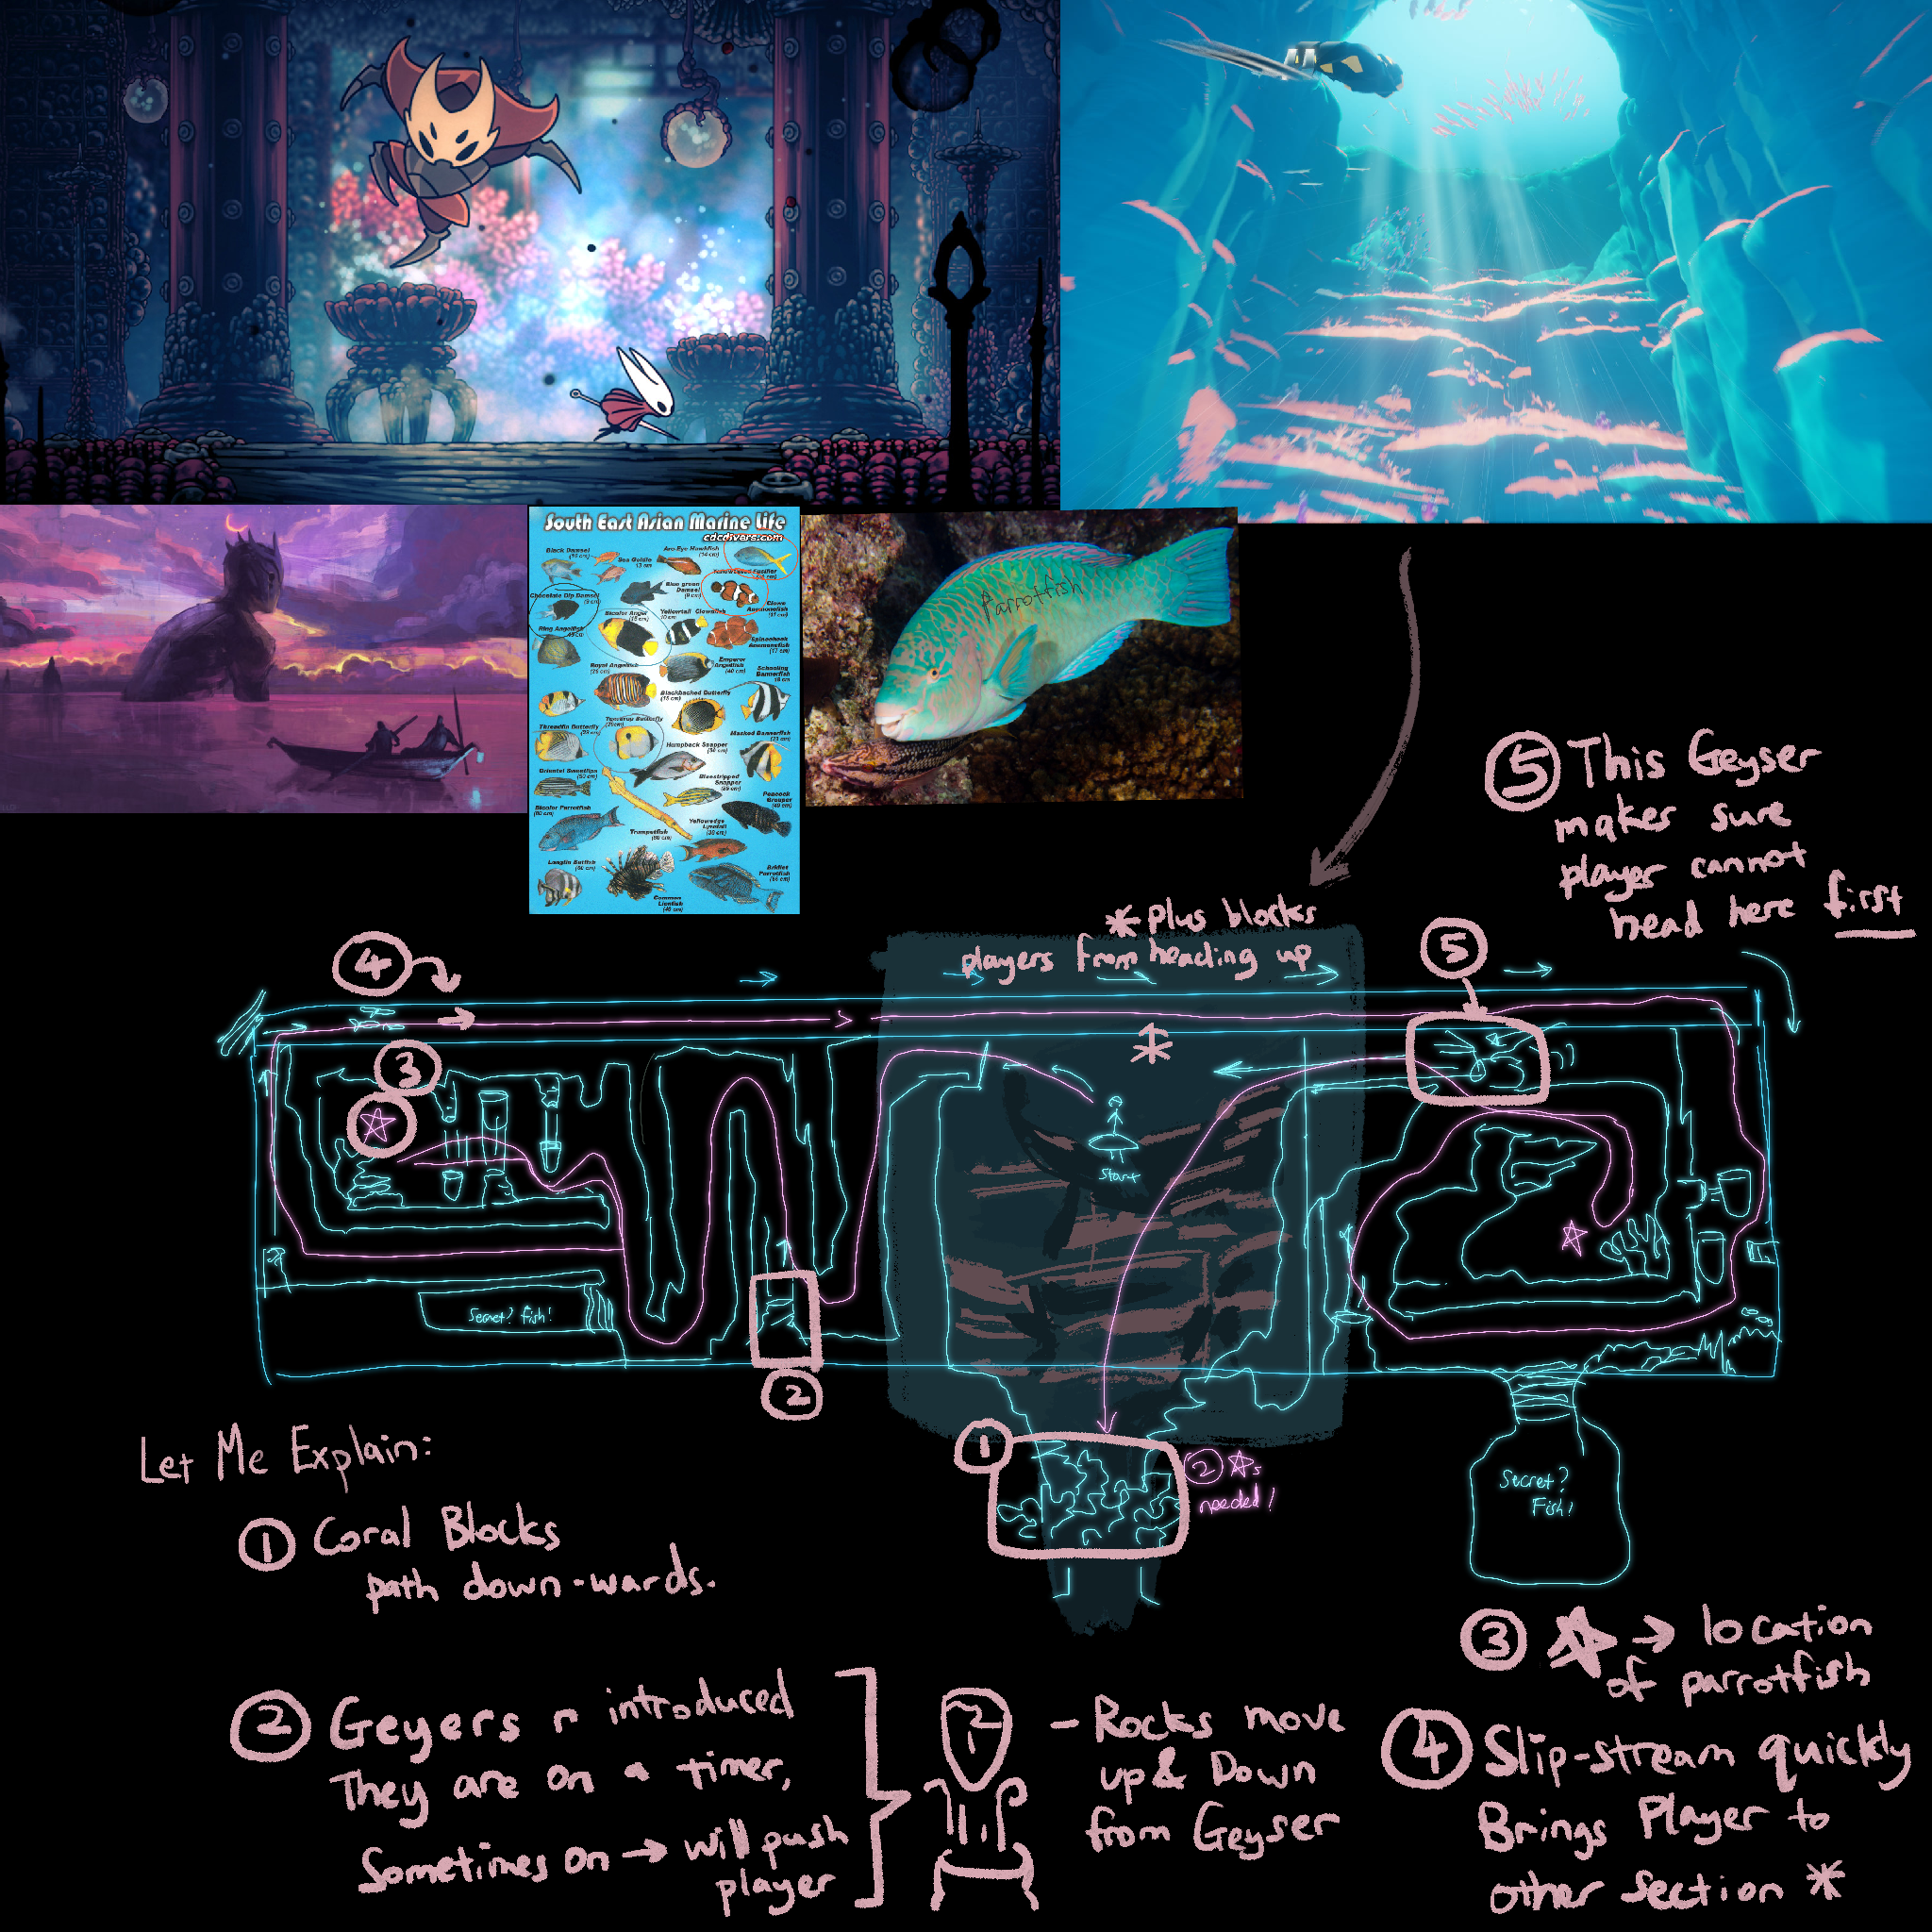 South East Asian Marine Life
cdcdivers.com
Black Damsel
Sea Goldie
Arc-Eye Hawkfish
Blue green
Damsel
Clown
Anemonefish
Chocolate Dip Damsel
Bicolor Angel
Yellowtail Clownfish
Ring Angelfish
Spinecheek
Anemonefish
Royal Angelfish
Emperor
Angelfish
Schooling
Bannerfish
Blackbacked Butterfly
Threadfin Butterfly
Teardrop Butterfly
Humpback Snapper
Masked Bannerfish
Oriental Sweetlips
Bluestripped
Snapper
Peacock
Grouper
Bicolor Parrotfish
Trumpetfish
Yellowedge
Lyretail
Longfin Batfish
Common
Lionfish
Bridled
Parrotfish
Parrotfish
5 This Geyser
makes sure
player cannot
head here first
* Plus blocks
players from heading up
4
5
3
Start
Secret? fish!
2
1
2 ☆s
needed!
Secret?
Fish!
Let Me Explain:
1 Coral Blocks
path down-wards.
2 Geyers r introduced
They are on a timer,
Sometimes on → will push
player
- Rocks move
up & Down
from Geyser
3 ☆ → location
of parrotfish
4 Slip-stream quickly
Brings Player to
other section *